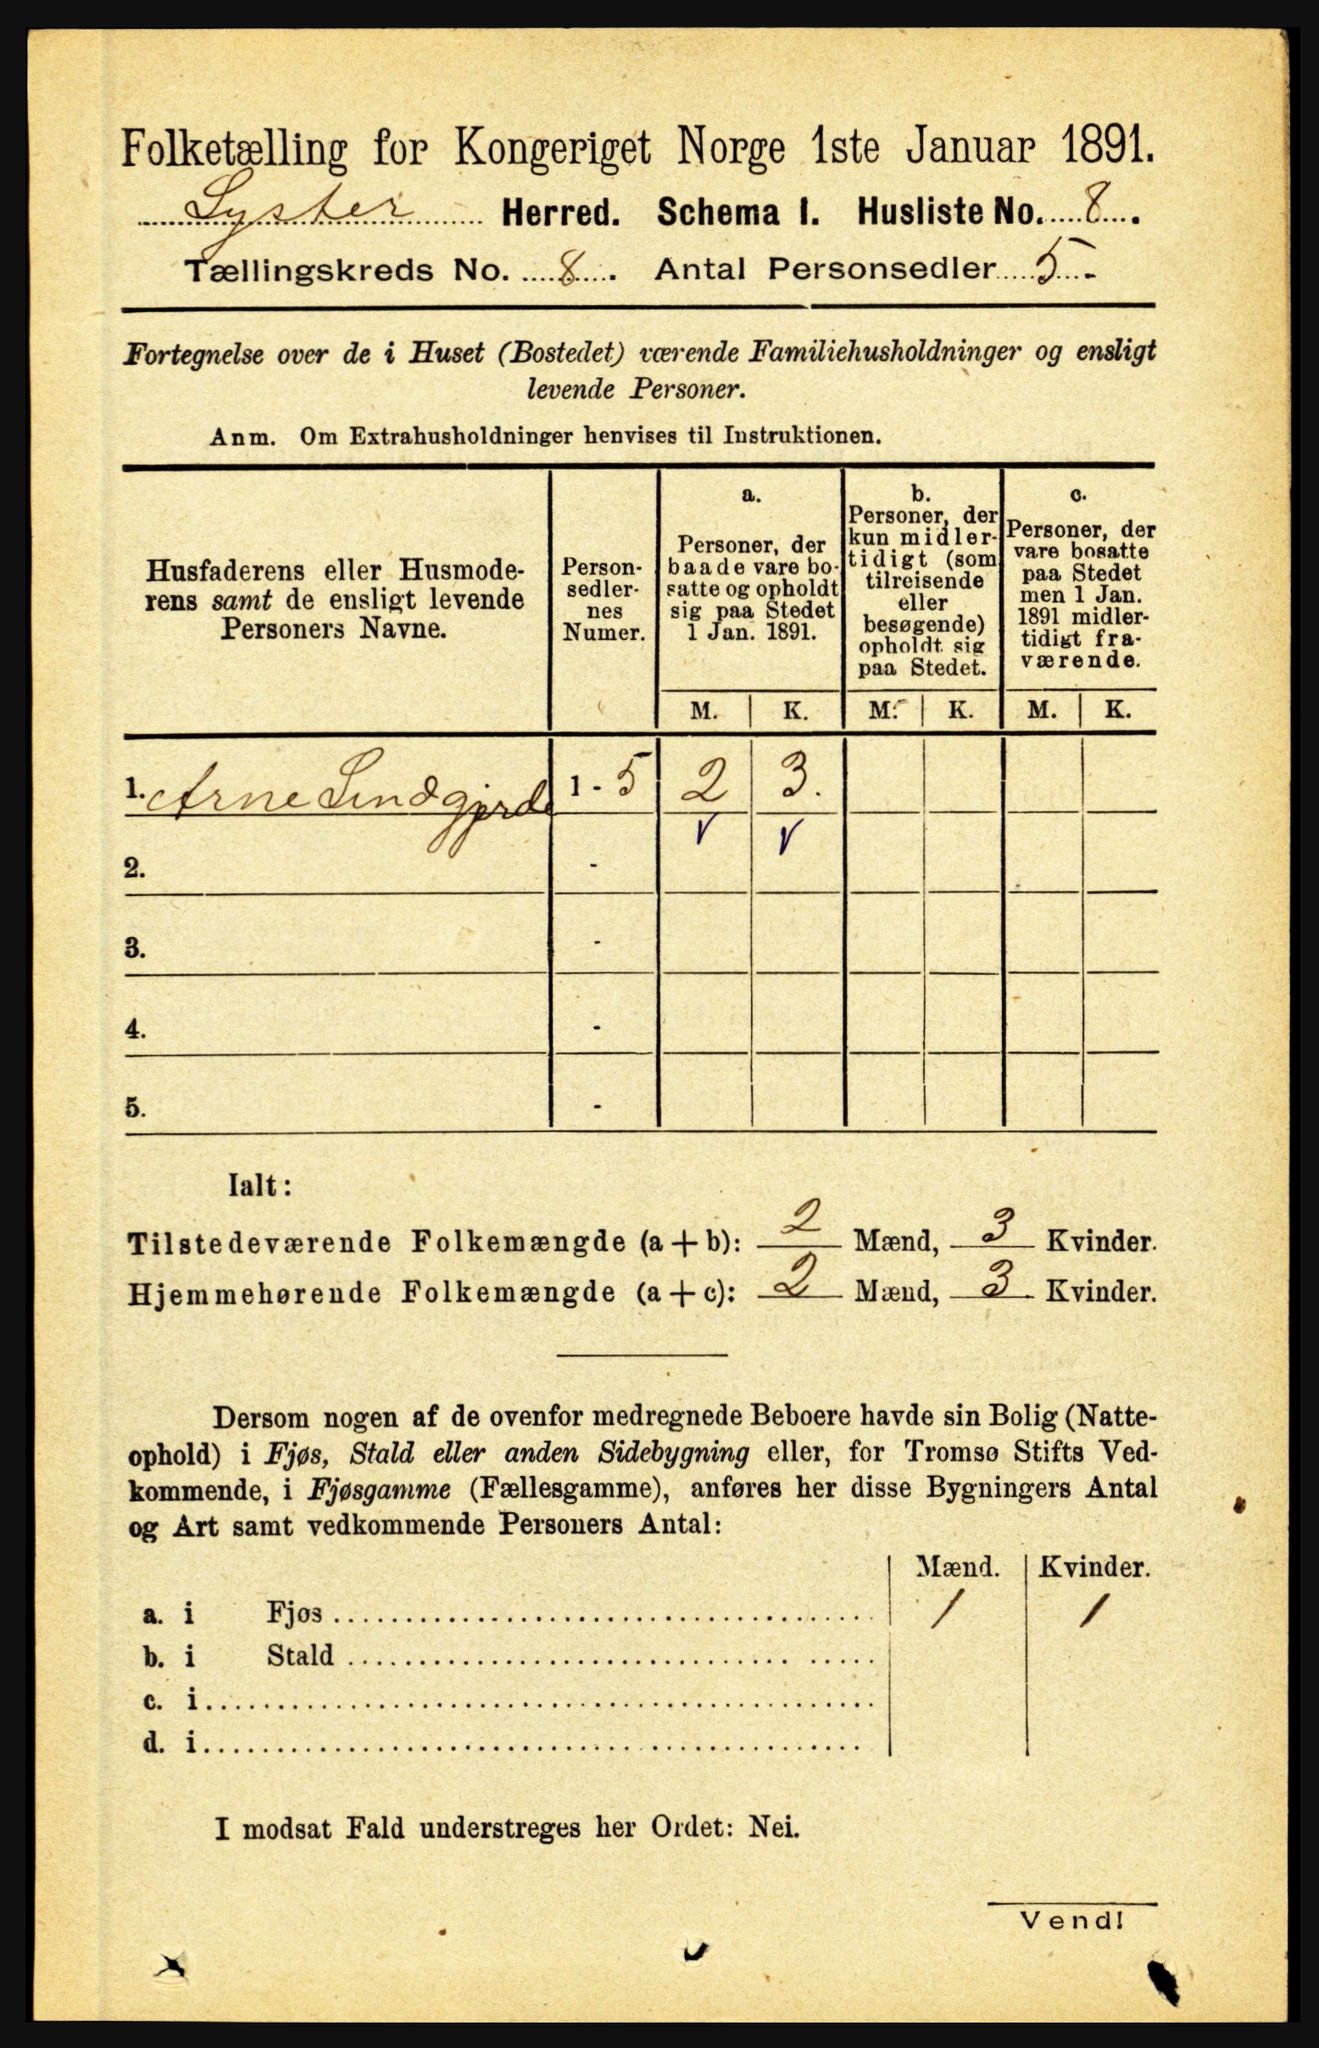 Folketælling for Kongeriget Norge 1ste Januar 1891.
Lyster Herred. Schema I. Husliste No. 8.
Tællingskreds No. 8. Antal Personsedler 5.
Fortegnelse over de i Huset (Bostedet) værende Familiehusholdninger og ensligt
levende Personer.
Anm. Om Extrahusholdninger henvises til Instruktionen.
Husfaderens eller Husmode-
rens samt de ensligt levende
Personers Navne.
Person-
sedler-
nes
Numer.
a.
Personer, der
baade vare bo-
satte og opholdt
sig paa Stedet
1 Jan. 1891.
b.
Personer, der
kun midler-
tidigt (som
tilreisende
eller
besøgende)
opholdt sig
paa Stedet.
c.
Personer, der
vare bosatte
paa Stedet
men 1 Jan.
1891 midler-
tidigt fra-
værende.
M. K. M. K. M. K.
1. Arne 1 - 5 2 3.
2. -
3. -
4. -
5. -
Ialt:
Tilstedeværende Folkemængde (a + b): 2 Mænd, 3 Kvinder.
Hjemmehørende Folkemængde (a + c): 2 Mænd, 3 Kvinder.
Dersom nogen af de ovenfor medregnede Beboere havde sin Bolig (Natte-
ophold) i Fjøs, Stald eller anden Sidebygning eller, for Tromsø Stifts Ved-
kommende, i Fjøsgamme (Fællesgamme), anføres her disse Bygningers Antal
og Art samt vedkommende Personers Antal:
Mænd. Kvinder.
a. i Fjøs 1 1
b. i Stald
c. i
d. i
I modsat Fald understreges her Ordet: Nei.
Vend!